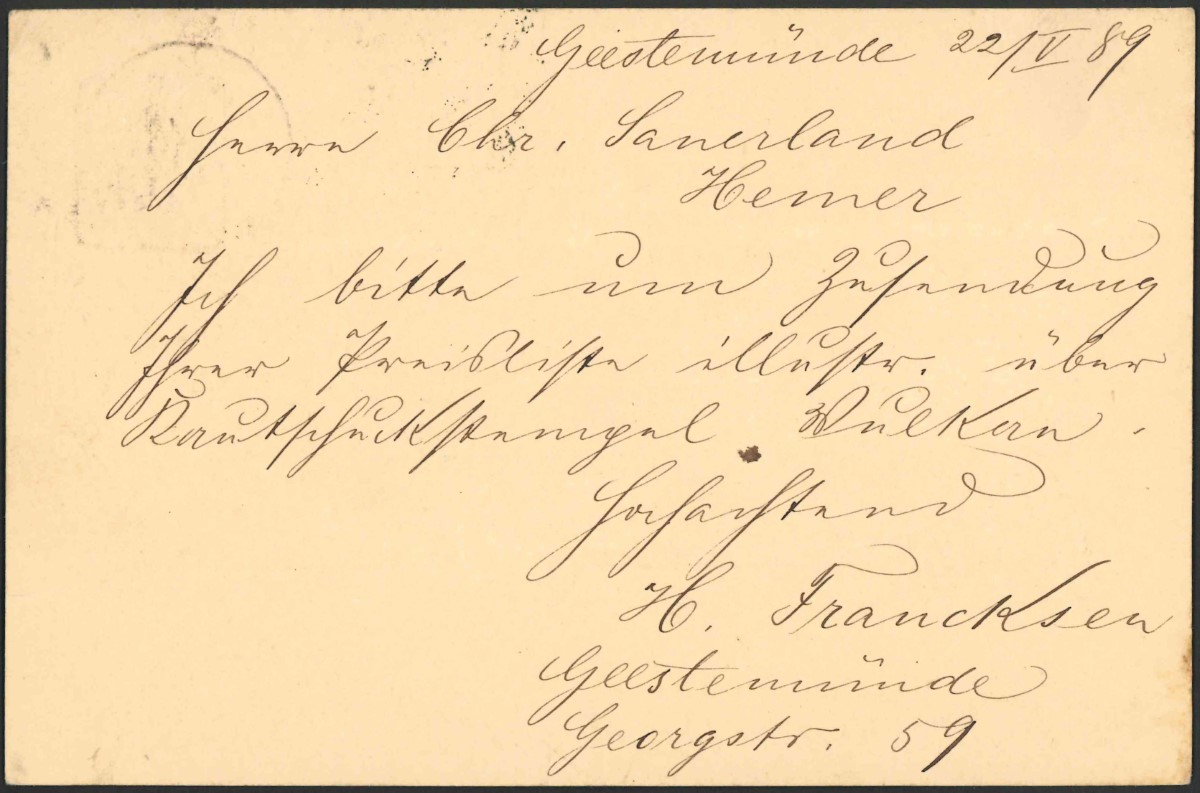 Geestemünde 22/V 89
Herrn Chr. Sauerland
Hemer
Ich bitte um Zusendung
Ihrer Preisliste illustr. über
Kautschuckstempel Vulkan.
Hochachtend
H. Francksen
Geestemünde
Georgstr. 59